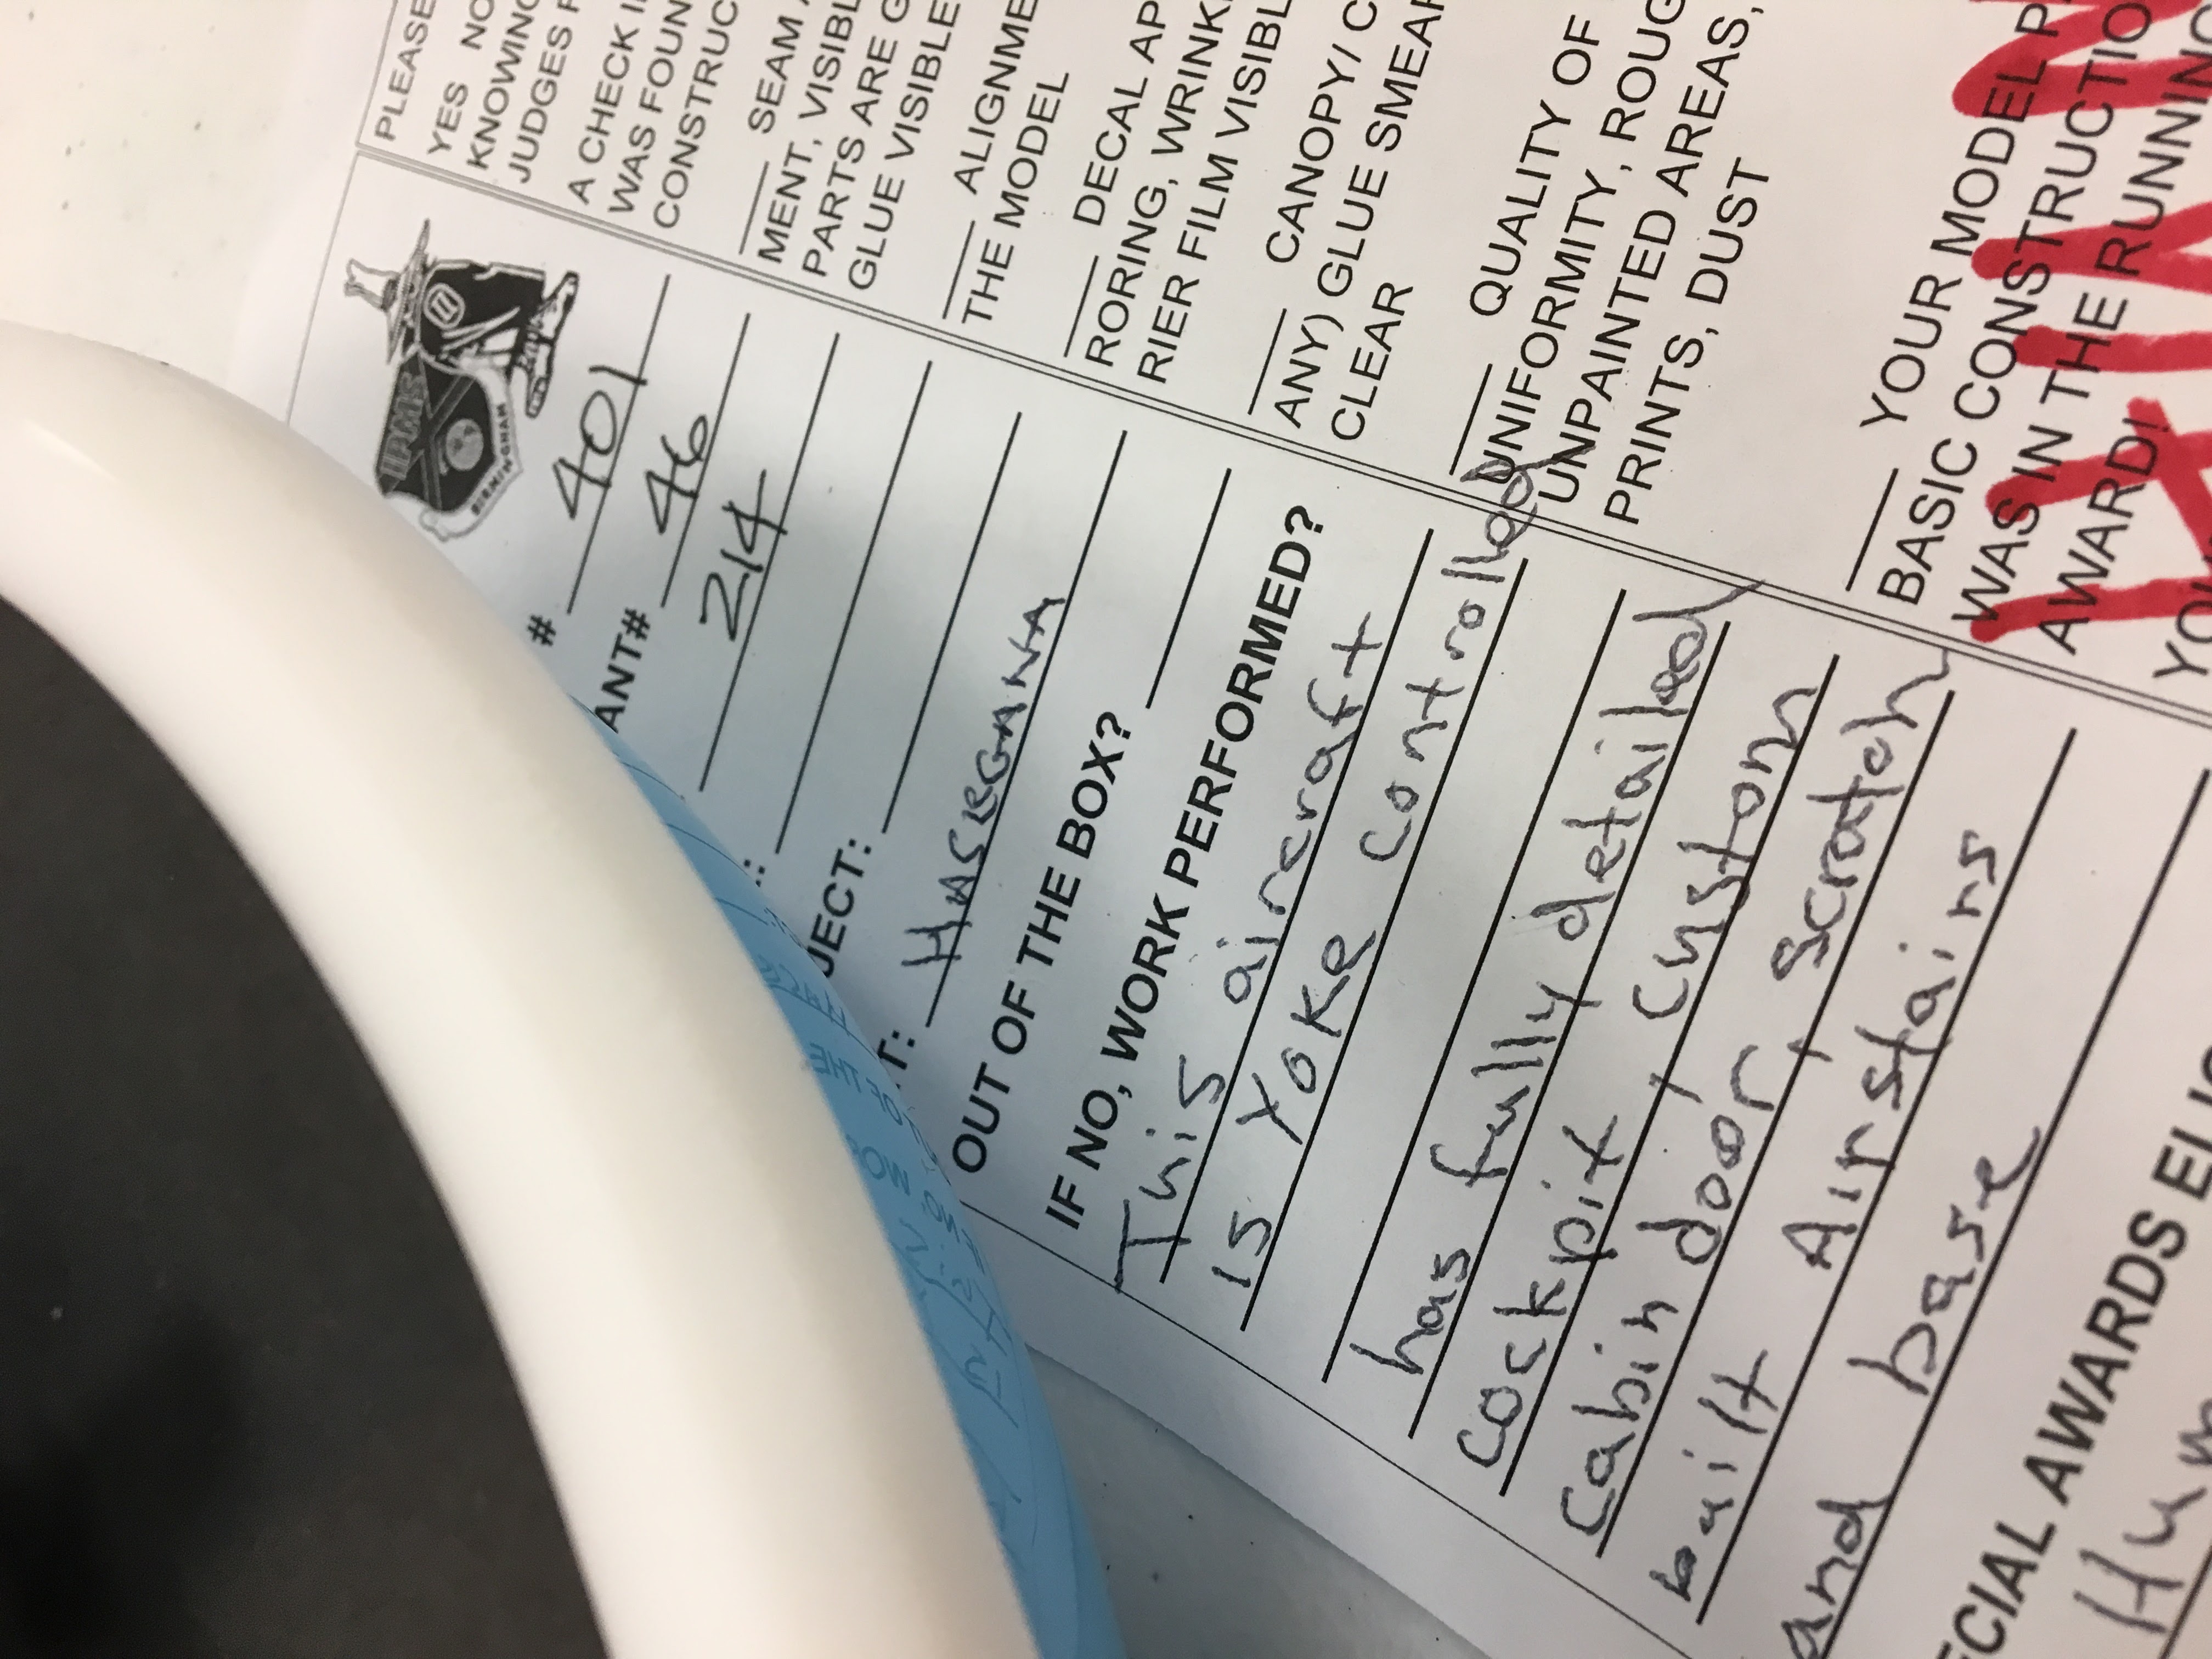 IPMS
BIRMINGHAM
# 401
ANT# 46
214
JECT:
T: HASEGAWA
OUT OF THE BOX?
IF NO, WORK PERFORMED?
This aircraft
is Yoke controlled
has fully detailed
cockpit, custom
Cabin door, scratch
built Airstairs
and base
ECIAL AWARDS ELIG
Hum
PLEASE
YES NO
KNOWING
JUDGES
A CHECK I
WAS FOUN
CONSTRUC
SEAM
MENT, VISIBL
PARTS ARE G
GLUE VISIBLE
ALIGNME
THE MODEL
DECAL AP
RORING, WRINK
RIER FILM VISIBL
CANOPY/ C
ANY) GLUE SMEAR
CLEAR
QUALITY OF
UNIFORMITY, ROUG
UNPAINTED AREAS,
PRINTS, DUST
YOUR MODEL P
BASIC CONSTRUCTIO
WAS IN THE RUNNING
AWARD!
YOU